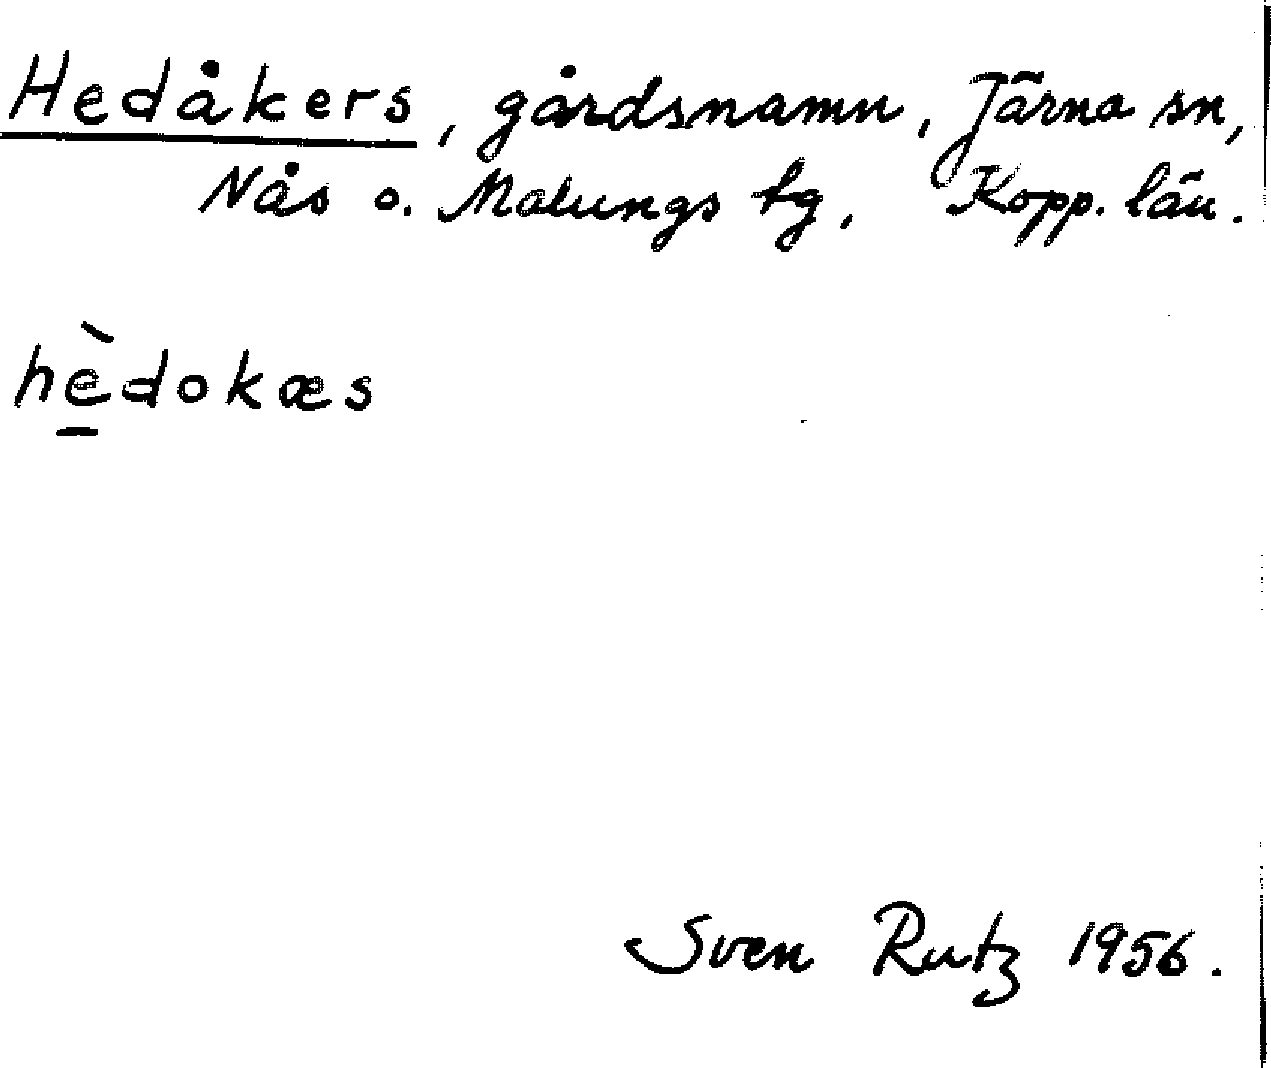 Hedåkers, gårdsnamn, Järna sn,
Nås o. Malungs tg, Kopp. län.
hèdokæs
Sven Rutz 1956.